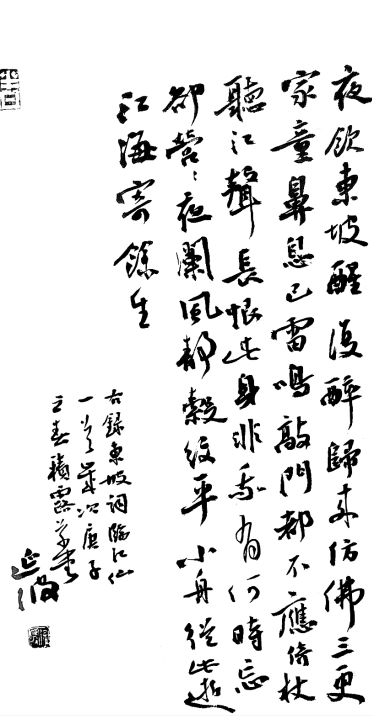 夜飲東坡醒復醉歸來仿佛三更
家童鼻息已雷鳴敲門都不應倚杖
聽江聲長恨此身非我有何時忘
卻營〻夜闌風靜縠紋平小舟從此逝
江海寄餘生
右錄東坡詞臨江仙
一首歲次庚子
之春積露